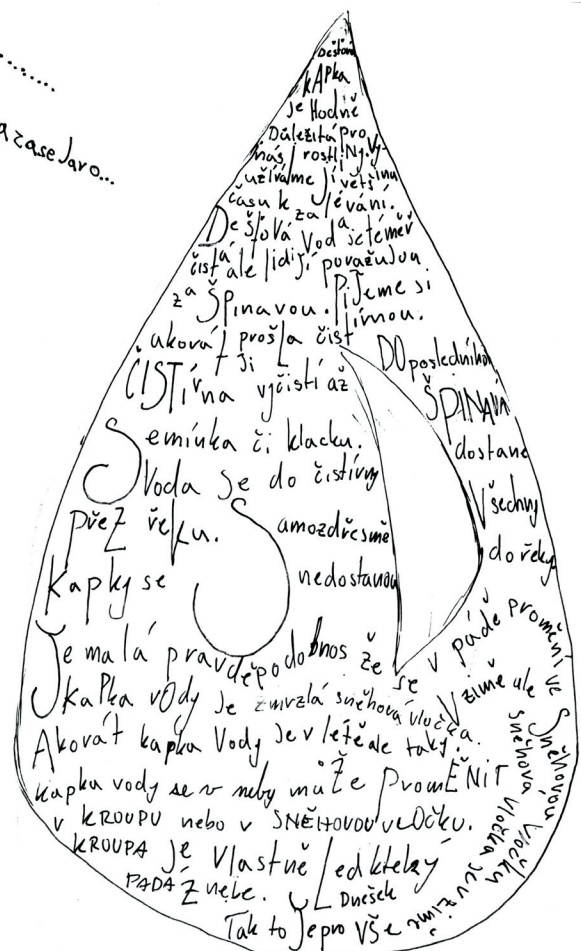 azaseJaro...
Dešťová
kAPka
je Hodně
Důležitá pro
nás rostliNy. Vy-
užíváme Jí většinu
času k zalévání.
Dešťová Voda jetéměř
čistá ale lidi jí považujou
za Špinavou. PiJeme si
akorát prošla čistírnou.
ČISTírna jí vyčistí až DOposledního
Semínka či klacku. ŠPINAVÁ
Voda se do čistírny dostane
přeZ řeku. Samozdřesmě Všechny
kapky se nedostanou do řeky
Je malá pravděpodobnos že se v páde promění ve Sněhovou vločku
kaPka vOdy je zmrzlá sněhová vločka. V zimě ale sněhová vločka je v zimě
Akovát kapka Vody Je v létě ale taky.
kapka vody se v neby můŽe PromĚNiT
v KROUPU nebo v SNĚHOVOU vLOčku.
KROUPA je Vlastně Led kteký
PADÁ Z nebe.
Dnešek
Tak to Jepro VŠe